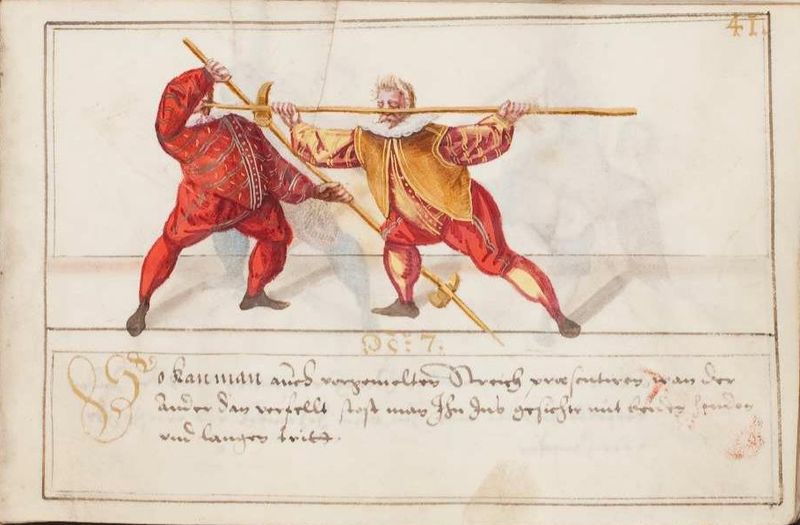 41.
N: 7.
So kan man auch vorgemelten Streich præsentiren, wan der
ander dan verfellt stost man Ihn Ins gesicht mit beiden henden
vnd langen tritt.